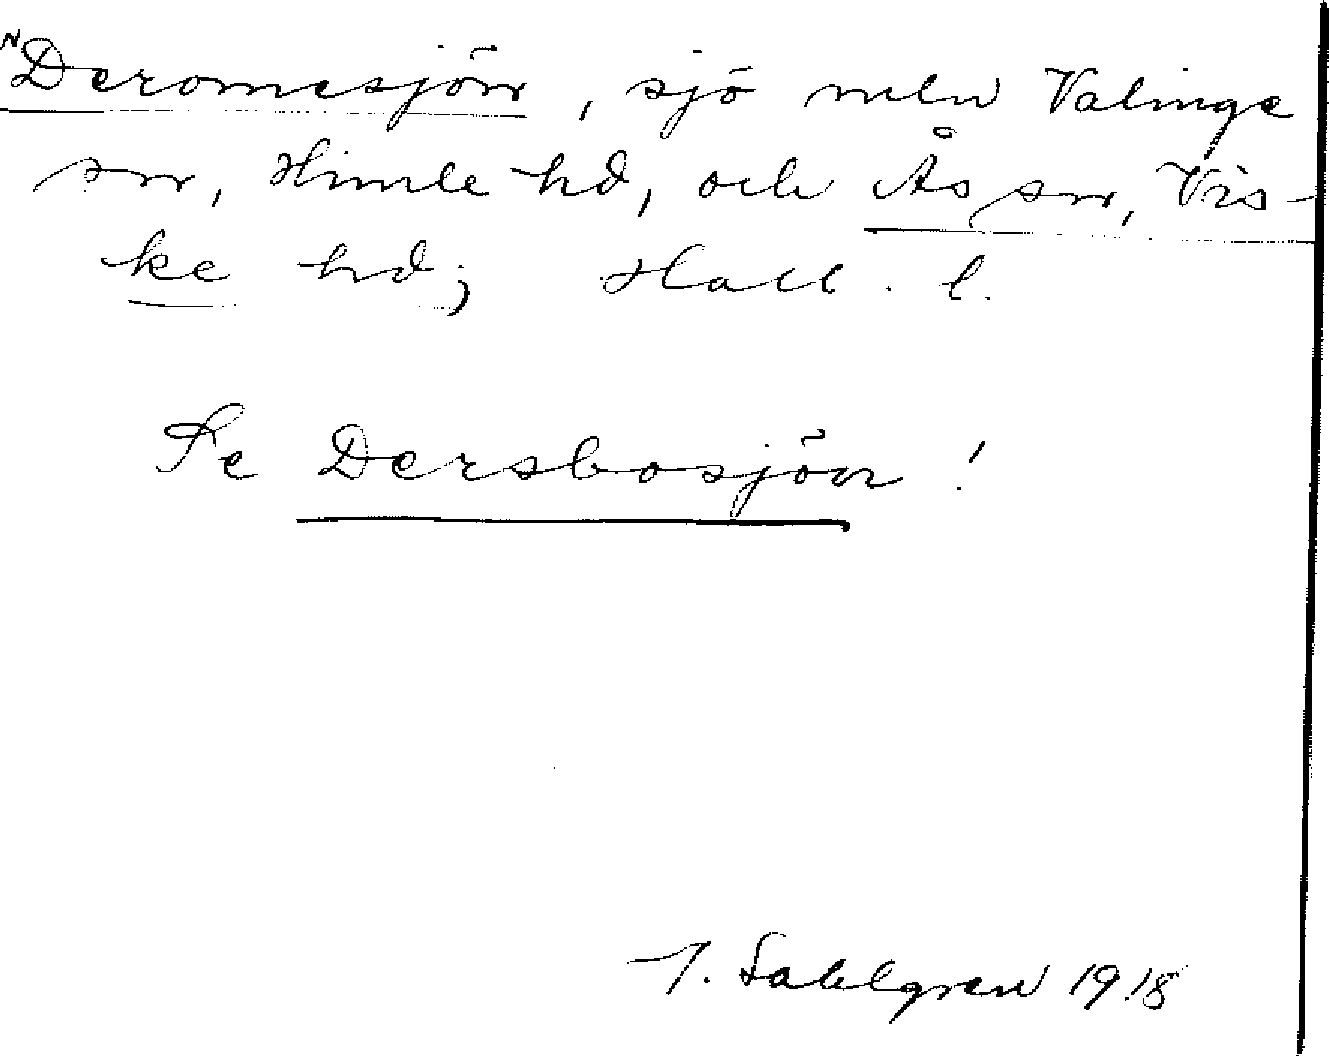 N Deromesjön, sjö meln Valinge
sn, Himle hd, och Ås sn, Vis-
ke hd; Hall. l.
Se Dersbosjön!
J. Sahlgren 1918